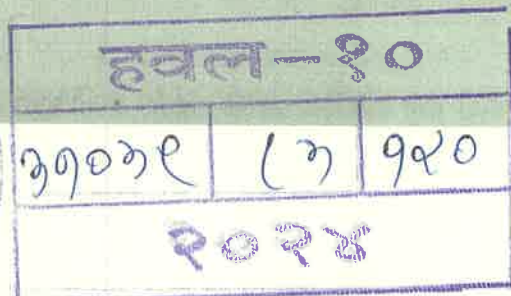 हवल-१०
३१०३९ ८३ १४०
२०२४